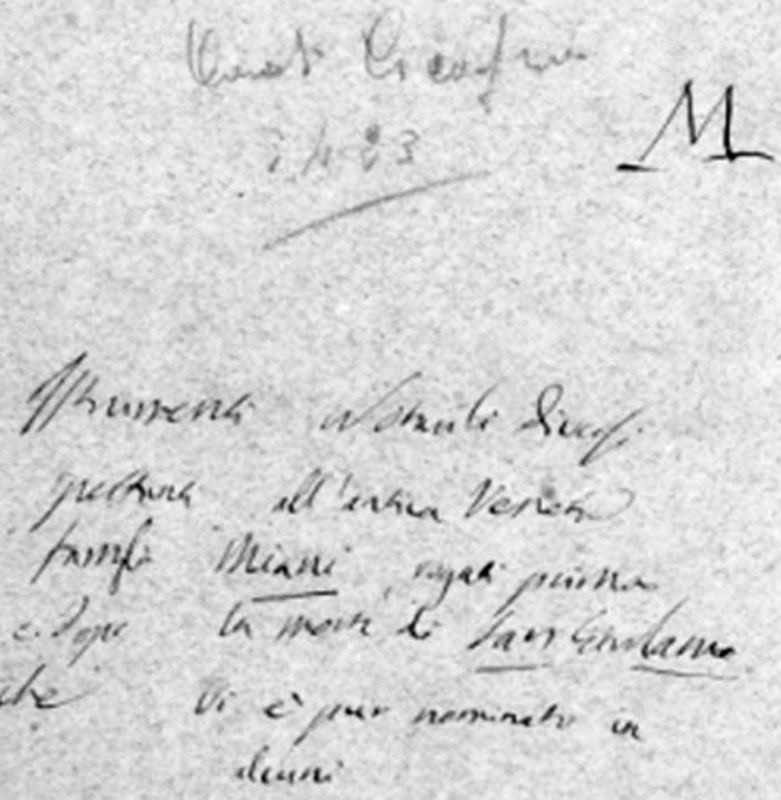 M
Istrumenti notarili diversi
spettanti all'antica Veneta
famiglia Miani, rogati prima
e dopo la morte di San Girolamo
che vi è pur nominato in
alcuni